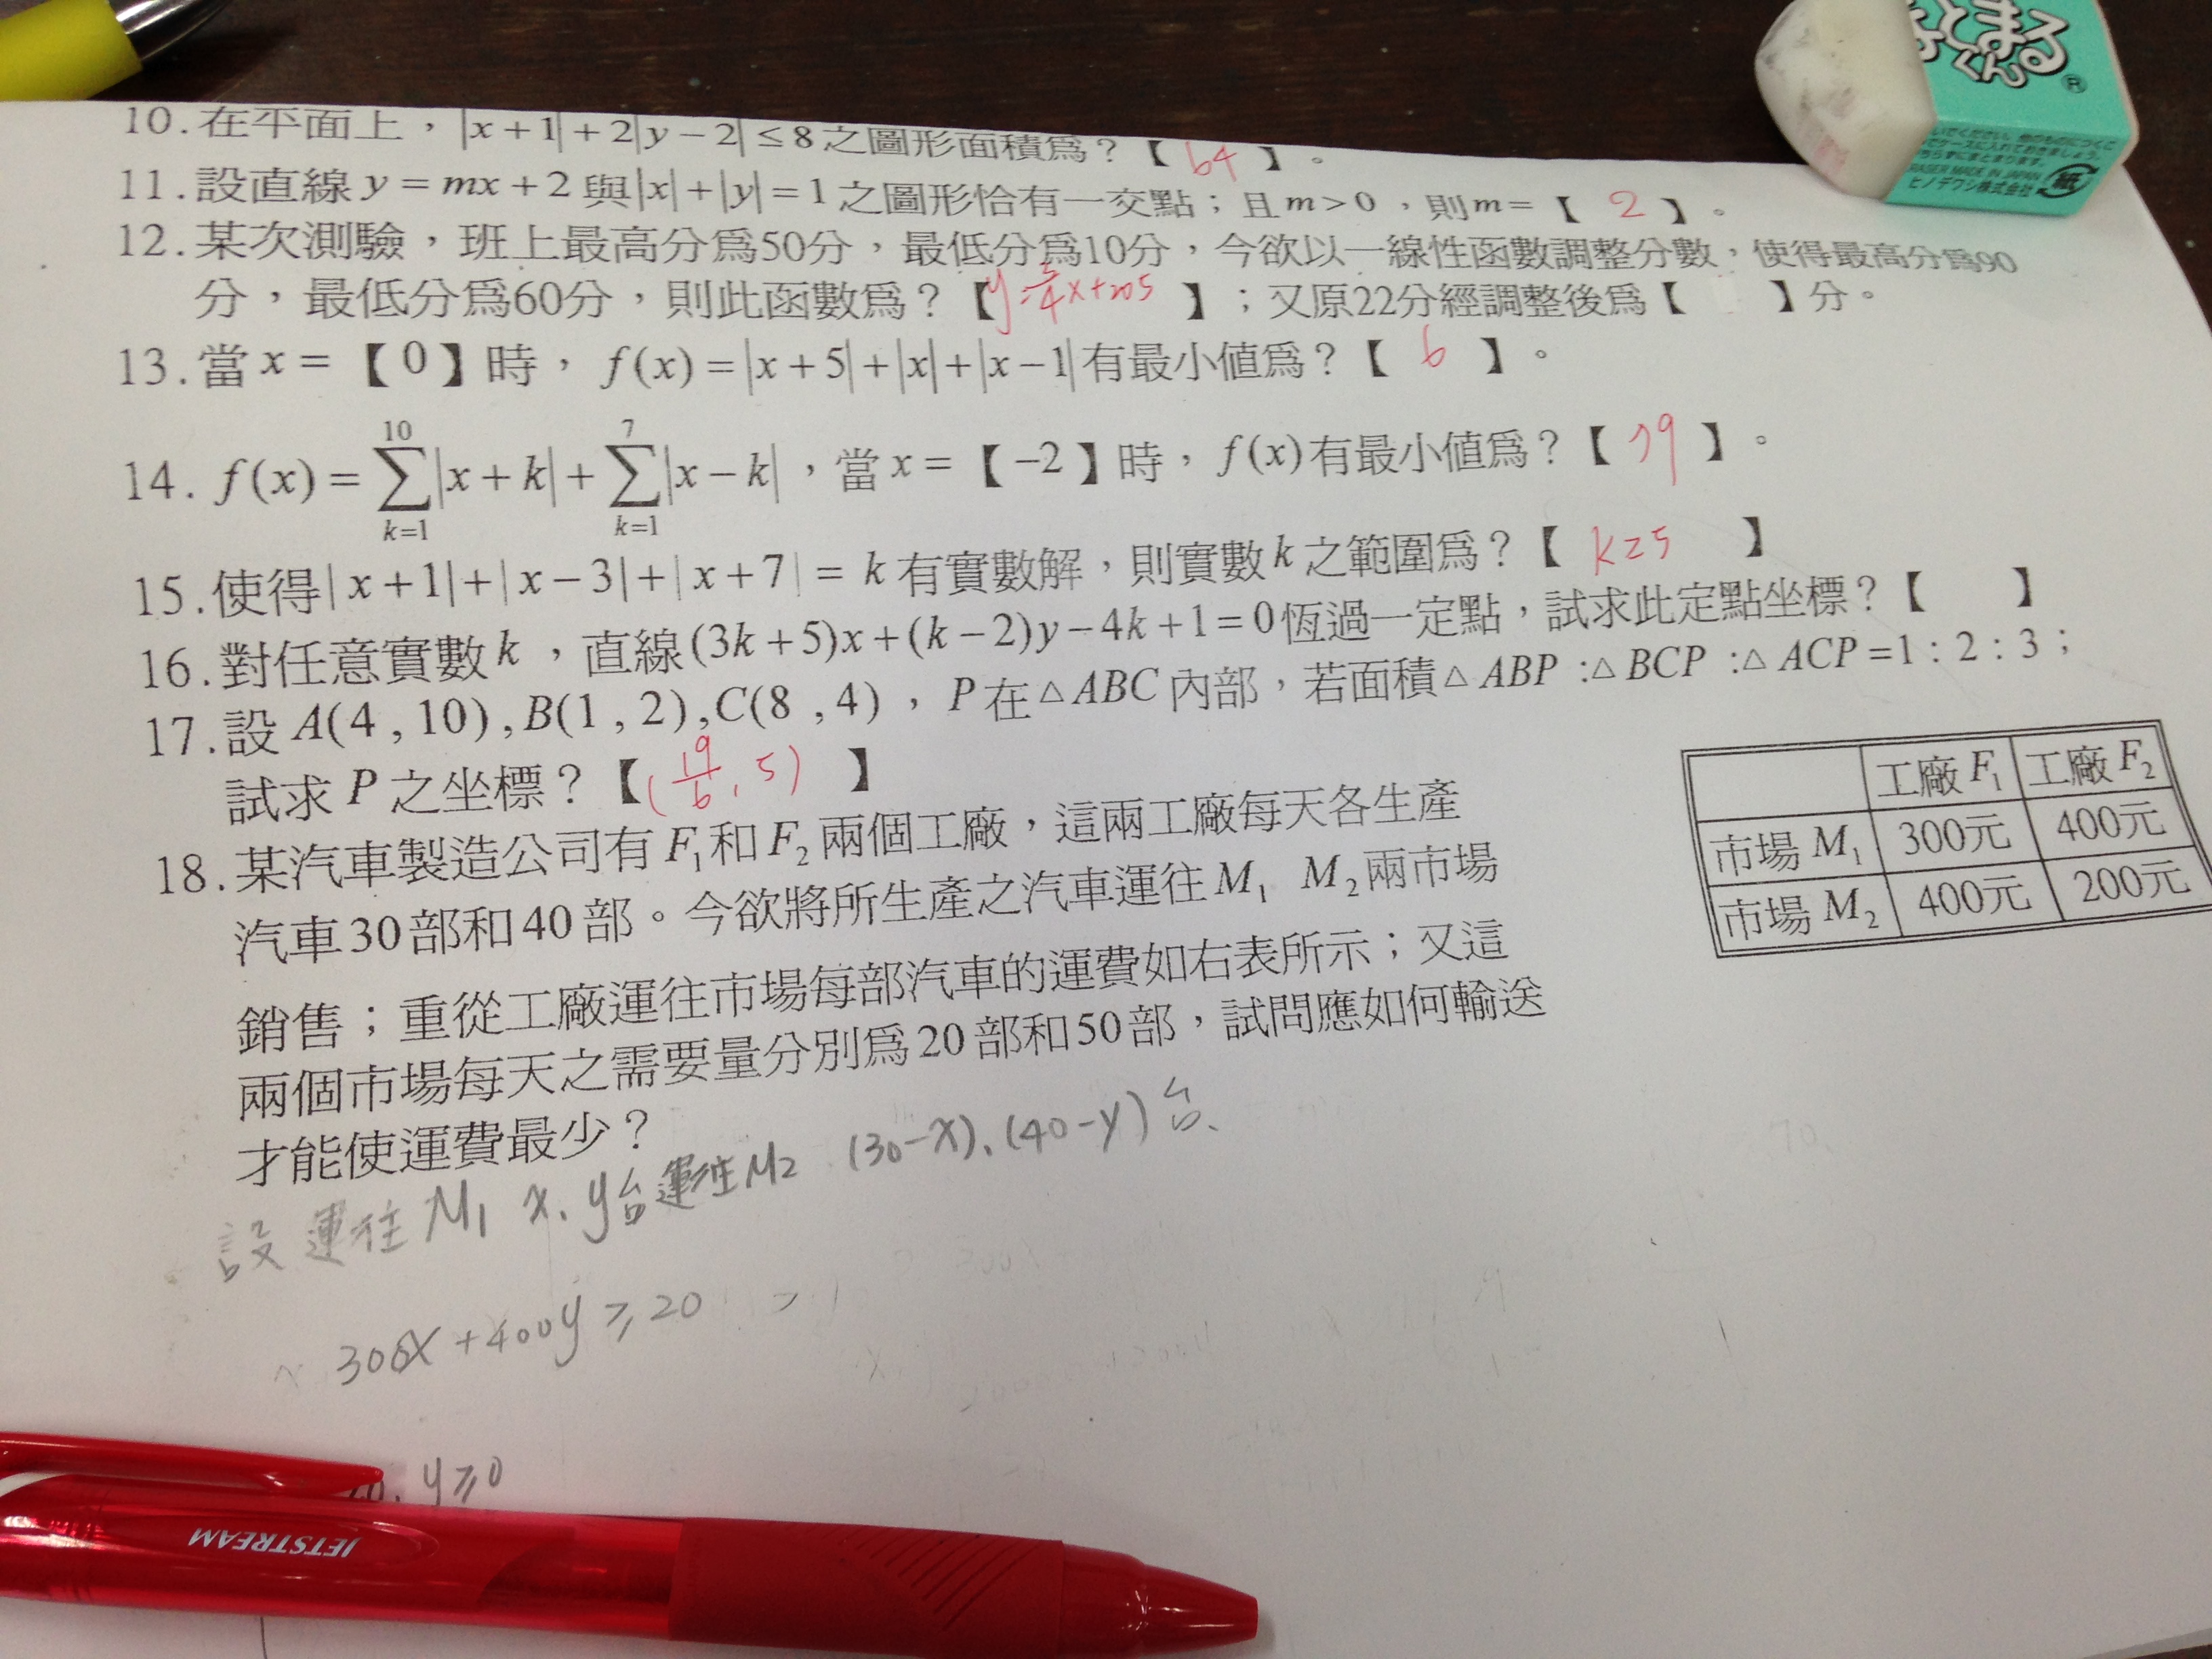 まとまるくん
ヒノデワシ株式会社
紙
10.在平面上，|x+1|+2|y−2|≤8之圖形面積爲？【 64 】。
11.設直線 y=mx+2 與|x|+|y|=1之圖形恰有一交點；且m>0，則m=【 2 】。
12.某次測驗，班上最高分爲50分，最低分爲10分，今欲以一線性函數調整分數，使得最高分爲90
分，最低分爲60分，則此函數爲？【 】；又原22分經調整後爲【 】分。
13.當 x=【0】時，f(x)=|x+5|+|x|+|x−1|有最小值爲？【 6 】。
14. f(x)=∑_{k=1}^{10}|x+k|+∑_{k=1}^{7}|x−k|，當x=【−2】時，f(x)有最小值爲？【 79 】。
15.使得|x+1|+|x−3|+|x+7|=k有實數解，則實數k之範圍爲？【 】
16.對任意實數k，直線(3k+5)x+(k−2)y−4k+1=0恆過一定點，試求此定點坐標？【 】
17.設 A(4,10),B(1,2),C(8,4)，P在△ABC內部，若面積△ABP:△BCP:△ACP=1:2:3；
試求 P 之坐標？【(19/6, 5) 】
18.某汽車製造公司有F₁和F₂兩個工廠，這兩工廠每天各生產
汽車30部和40部。今欲將所生產之汽車運往M₁ M₂兩市場
銷售；重從工廠運往市場每部汽車的運費如右表所示；又這
兩個市場每天之需要量分別爲20部和50部，試問應如何輸送
才能使運費最少？
工廠F₁ 工廠F₂
市場M₁ 300元 400元
市場M₂ 400元 200元
設 運往M₁ x、y台運往M₂ (30−x)、(40−y)台
300x+400y≥20
y≥0
JETSTREAM